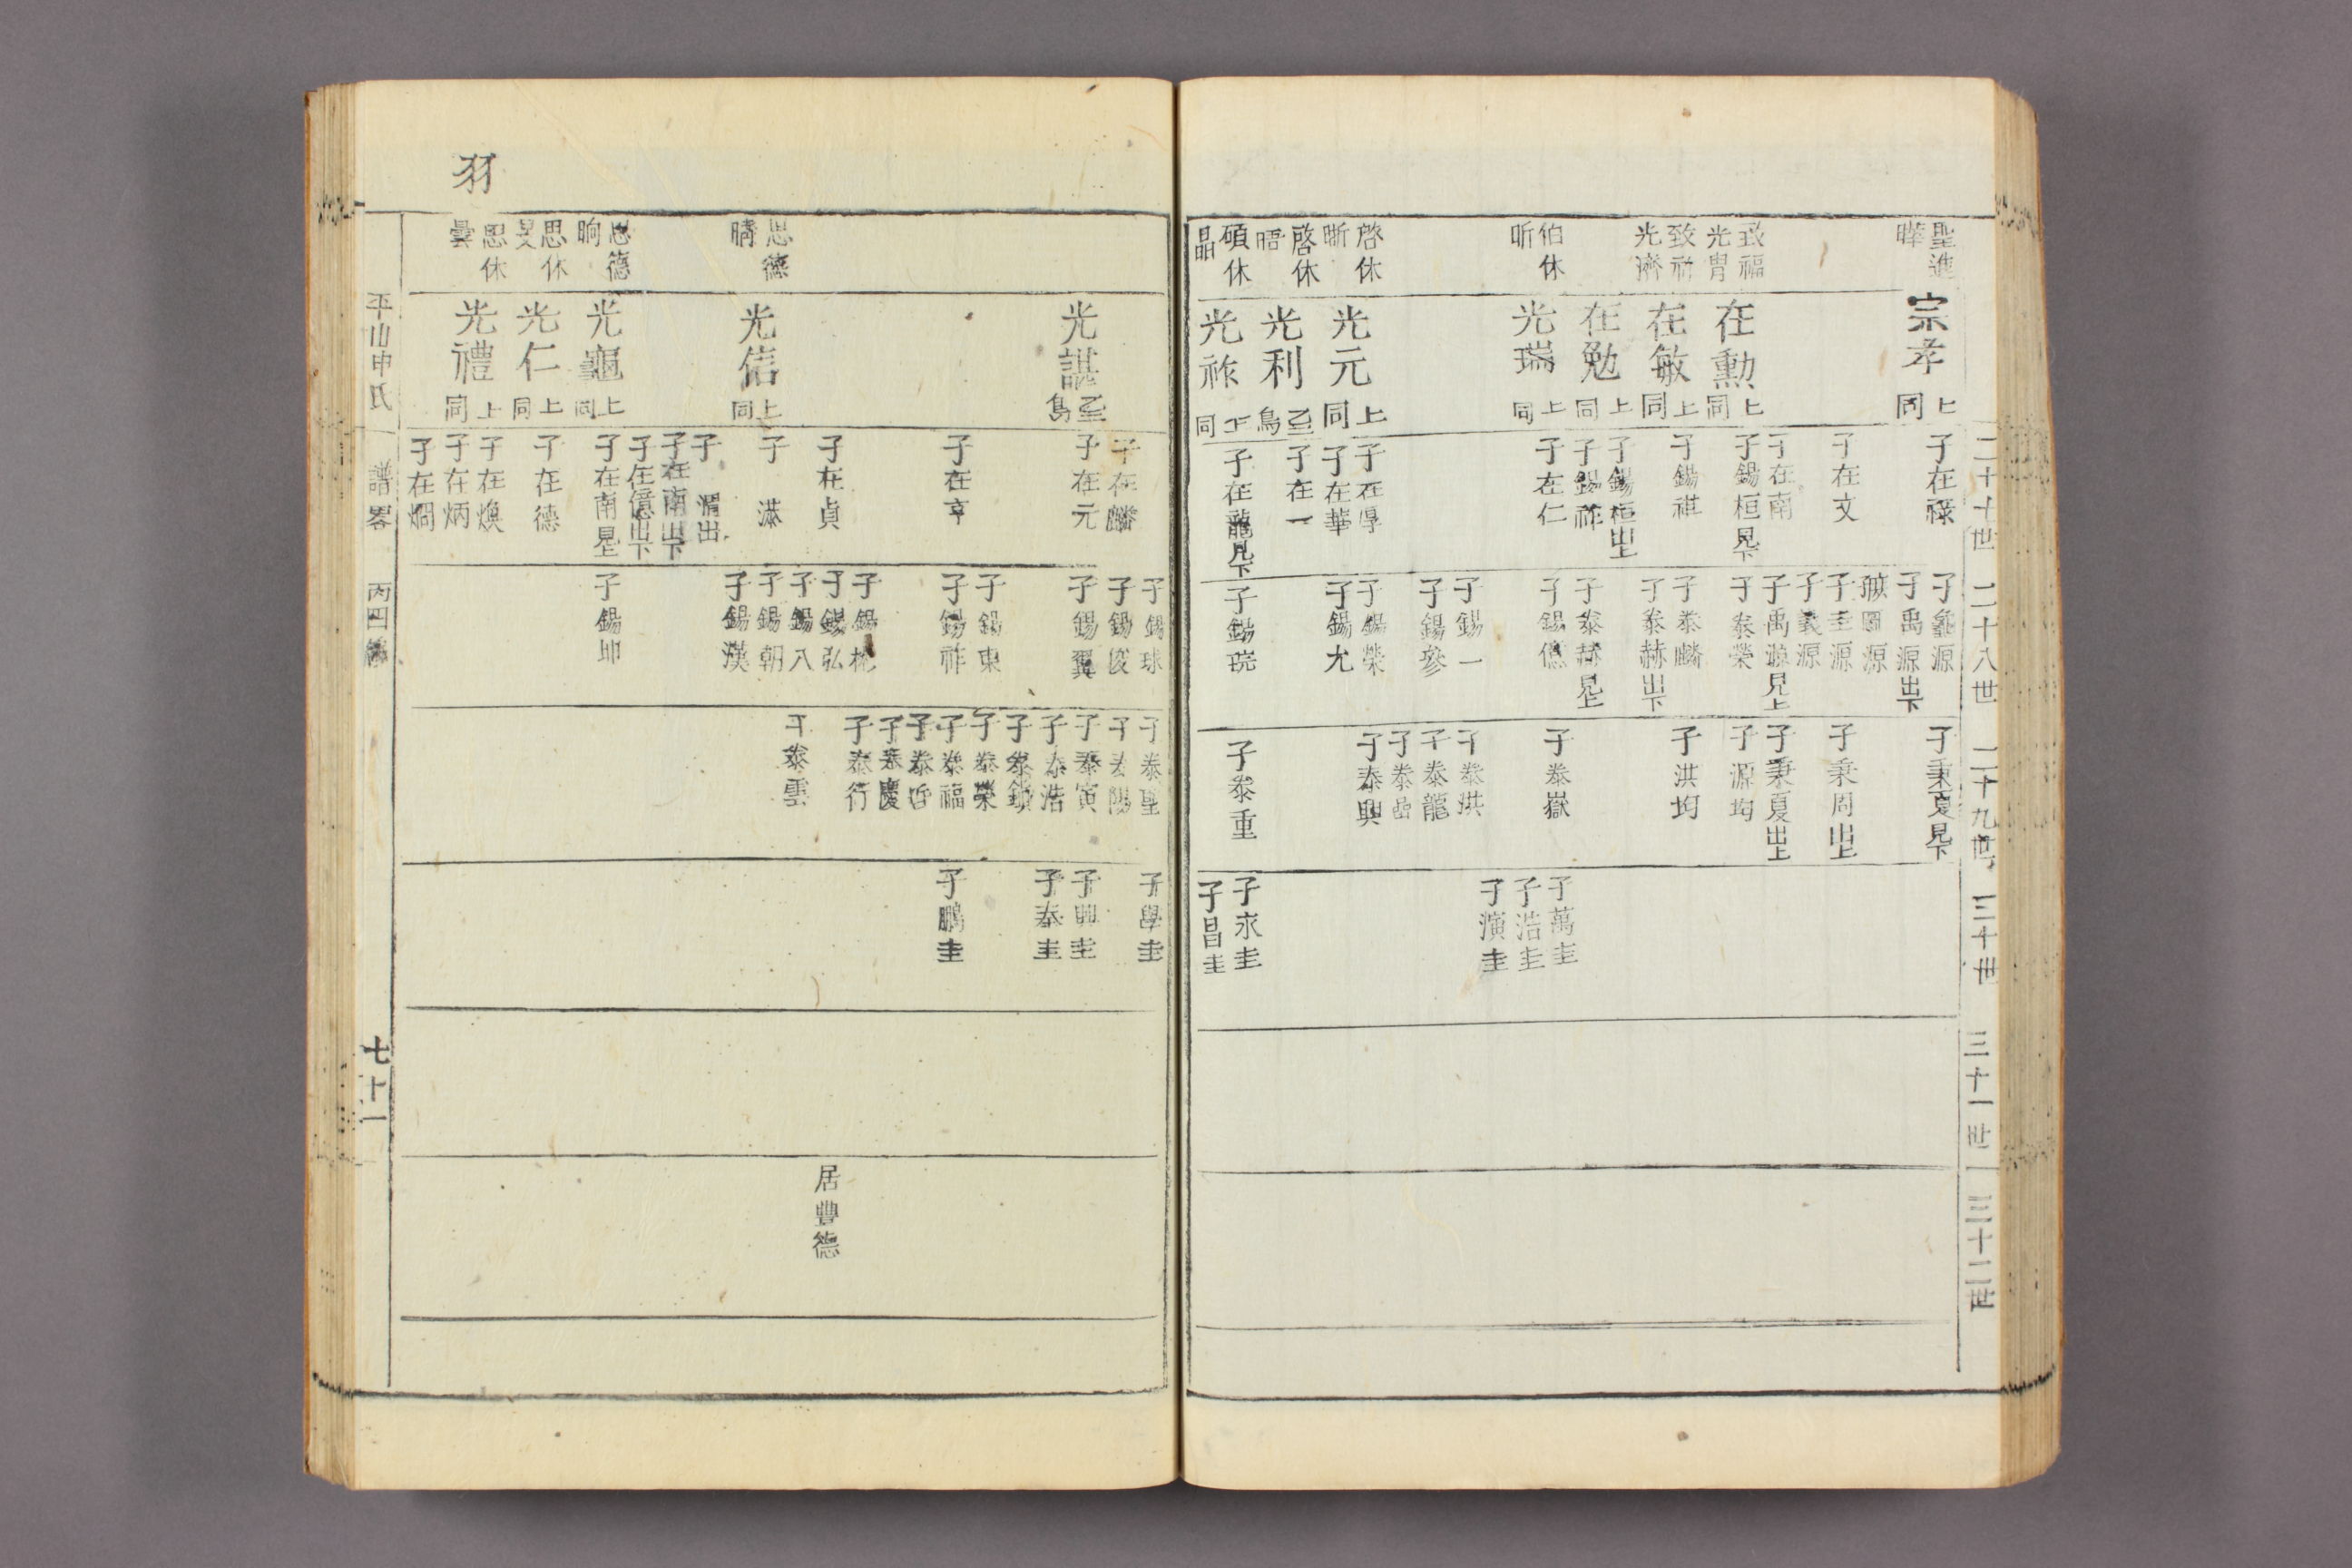 二十七世
二十八世
二十九世
三十世
三十一世
三十二世
聖進
曄
致福
光胄
致福
光濟
伯休
昕
啓休
晣
啓休
晤
碩休
晶
宗孝 上同
在勲 上同
在敏 上同
在勉 上同
光瑞 上同
光元 上同
光利
光祚
子在祿
子在文
子在南
子錫桓見下
子錫祺
子錫桓出上
子錫祚
子在仁
子在厚
子在華
子在一
子在龍見下
子龜源
子禹源出下
子圭源
子義源
子禹源見上
子泰榮
子泰麟
子泰赫出下
子泰赫見上
子錫僖
子錫一
子錫參
子錫榮
子錫尤
子錫琓
子秉夏見下
子秉周出上
子秉夏出上
子源均
子洪均
子泰嶽
子泰琪
子泰龍
子泰嵒
子泰興
子泰重
子萬圭
子浩圭
子演圭
子永圭
子昌圭
羽
思德
暷
思德
晌
思休
旻
思休
曇
光諶
光信 上同
光龜 上同
光仁 上同
光禮 上同
子在麟
子在元
子在亨
子在貞
子漭
子渭出
子在南出下
子在億出下
子在南見上
子在德
子在煥
子在炳
子在烱
子錫球
子錫俊
子錫翼
子錫東
子錫祚
子錫弘
子錫八
子錫朝
子錫漢
子錫坤
子泰聖
子泰陽
子泰寅
子泰浩
子泰鎖
子泰榮
子泰福
子泰哲
子泰慶
子泰行
子泰雲
子學圭
子興圭
子泰圭
子鵬圭
居豊德
平山申氏
譜畧
丙四編
七十一